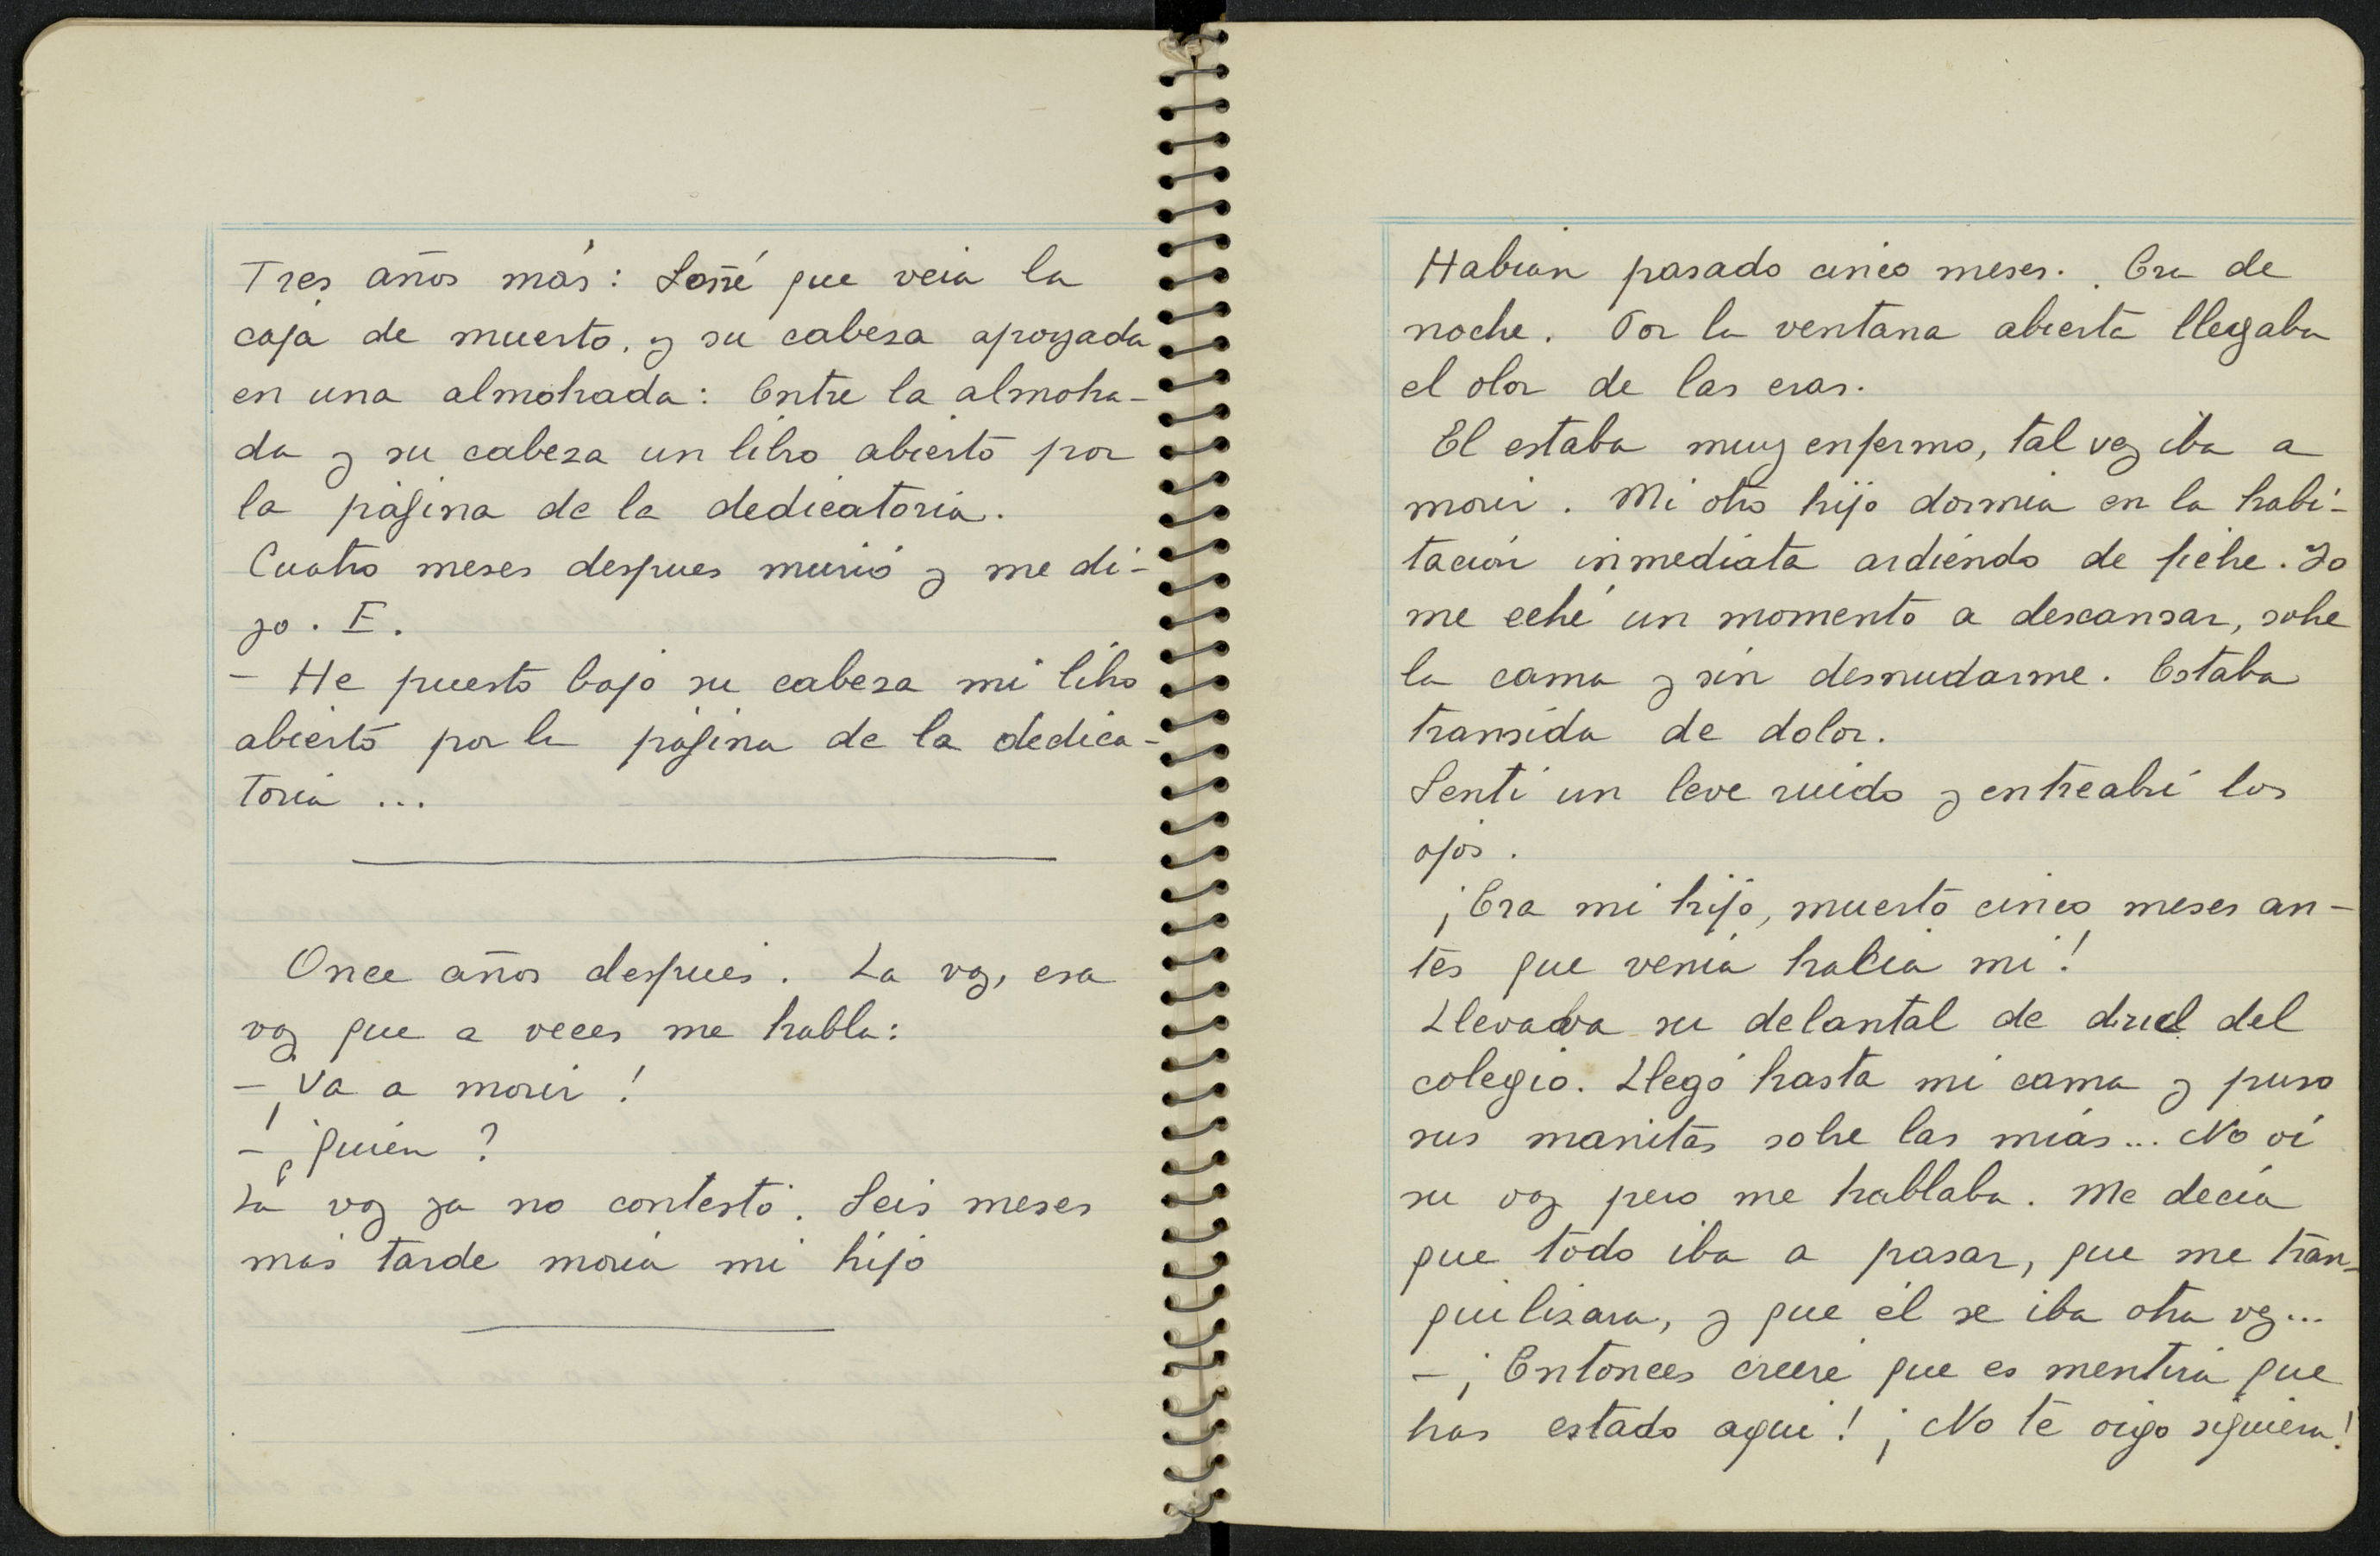 Tres años más: Soñé que veia la
caja de muerto, y su cabeza apoyada
en una almohada: Entre la almoha-
da y su cabeza un libro abierto por
la página de la dedicatoria.
Cuatro meses despues murió y me di-
jo. E.
- He puesto bajo su cabeza mi libro
abierto por la página de la dedica-
toria ...
Once años después. La voz, esa
voz que a veces me habla:
- ¡Va a morir!
- ¿Quién?
La voz ya no contestó. Seis meses
más tarde moria mi hijo
Habian pasado cinco meses. Era de
noche. Por la ventana abierta llegaba
el olor de las eras.
El estaba muy enfermo, tal vez iba a
morir. Mi otro hijo dormia en la habi-
tación inmediata ardiendo de fiebre. Yo
me eché un momento a descansar, sobre
la cama y sin desnudarme. Estaba
transida de dolor.
Senti un leve ruido y entreabrí los
ojos.
¡Era mi hijo, muerto cinco meses an-
tes que venia hacia mi!
Llevaba su delantal de dril del
colegio. Llegó hasta mi cama y puso
sus manitas sobre las mias... No oí
su voz pero me hablaba. Me decía
que todo iba a pasar, que me tran-
quilizara, y que él se iba otra vez...
- ¡Entonces creeré que es mentira que
has estado aqui! ¡No te oigo siquiera!